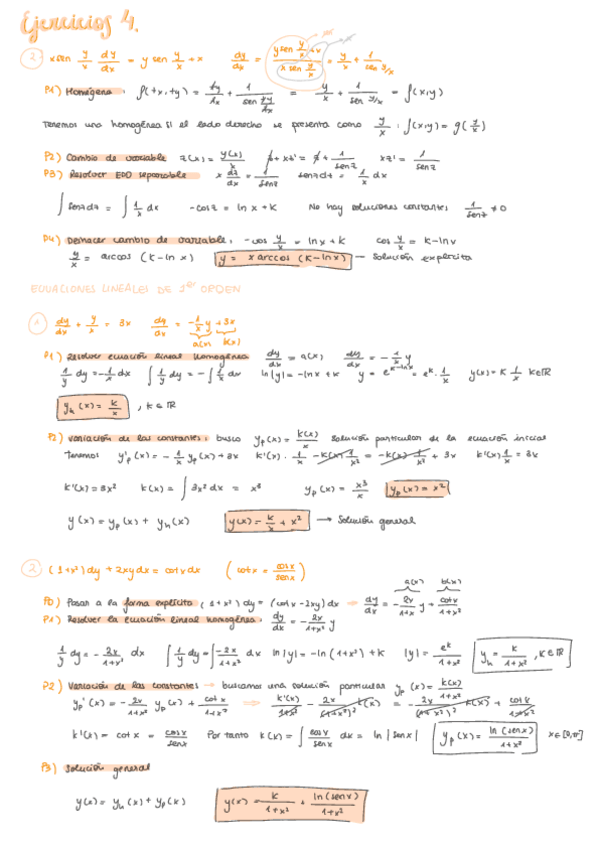 Ejercicios 4.
2) x sen y/x dy/dx = y sen y/x + x    dy/dx = (y sen y/x + x)/(x sen y/x) = y/x + 1/(sen y/x)
P1) Homógena: f(tx, ty) = ty/tx + 1/(sen ty/tx) = y/x + 1/(sen y/x) = f(x,y)
Tenemos una homogénea si el lado derecho se presenta como y/x : f(x,y) = g(y/x)
P2) Cambio de variable z(x) = y(x)/x    z + xz' = z + 1/senz    xz' = 1/senz
P3) Resolver EDO separable    x dz/dx = 1/senz    senz dz = 1/x dx
∫ senz dz = ∫ 1/x dx    -cos z = ln x + k    No hay soluciones constantes 1/senz ≠ 0
P4) Deshacer cambio de variable: -cos y/x = ln x + k    cos y/x = k - ln x
y/x = arccos (k - ln x)    y = x arccos (k - ln x) — solución explícita
ECUACIONES LINEALES DE 1er ORDEN
1) dy/dx + y/x = 3x    dy/dx = -1/x y + 3x
a(x) b(x)
P1) Resolver ecuación lineal homogénea    dy/dx = a(x)    dy/dx = -1/x y
1/y dy = -1/x dx    ∫ 1/y dy = -∫ 1/x dx    ln|y| = -ln x + k    y = e^(k-lnx) = e^k · 1/x    y(x) = k 1/x  k∈ℝ
y_h(x) = k/x , k ∈ ℝ
P2) Variación de las constantes: busco y_p(x) = k(x)/x solución particular de la ecuación inicial
Tenemos y'_p(x) = -1/x y_p(x) + 3x    k'(x) · 1/x - k(x) 1/x² = -k(x) 1/x² + 3x    k'(x) 1/x = 3x
k'(x) = 3x²    k(x) = ∫ 3x² dx = x³    y_p(x) = x³/x    y_p(x) = x²
y(x) = y_p(x) + y_h(x)    y(x) = k/x + x² → Solución general
2) (1+x²)dy + 2xydx = cotx dx    (cotx = cosx/senx)
a(x) b(x)
P0) Pasar a la forma explícita (1+x²)dy = (cotx - 2xy)dx → dy/dx = -2x/(1+x²) y + cotx/(1+x²)
P1) Resolver la ecuación lineal homogénea: dy/dx = -2x/(1+x²) y
1/y dy = -2x/(1+x²) dx    ∫ 1/y dy = ∫ -2x/(1+x²) dx    ln|y| = -ln(1+x²) + k    |y| = e^k/(1+x²)    y_h = k/(1+x²), k∈ℝ
P2) Variación de las constantes → buscamos una solución particular y_p(x) = k(x)/(1+x²)
y_p'(x) = -2x/(1+x²) y_p(x) + cotx/(1+x²) → k'(x)/(1+x²) - 2x/(1+x²)² k(x) = -2x/(1+x²)² k(x) + cotx/(1+x²)
k'(x) = cotx = cosx/senx    Por tanto k(x) = ∫ cosx/senx dx = ln|senx|    y_p(x) = ln(senx)/(1+x²)    x∈[0,π]
P3) Solución general
y(x) = y_h(x) + y_p(x)    y(x) = k/(1+x²) + ln(senx)/(1+x²)